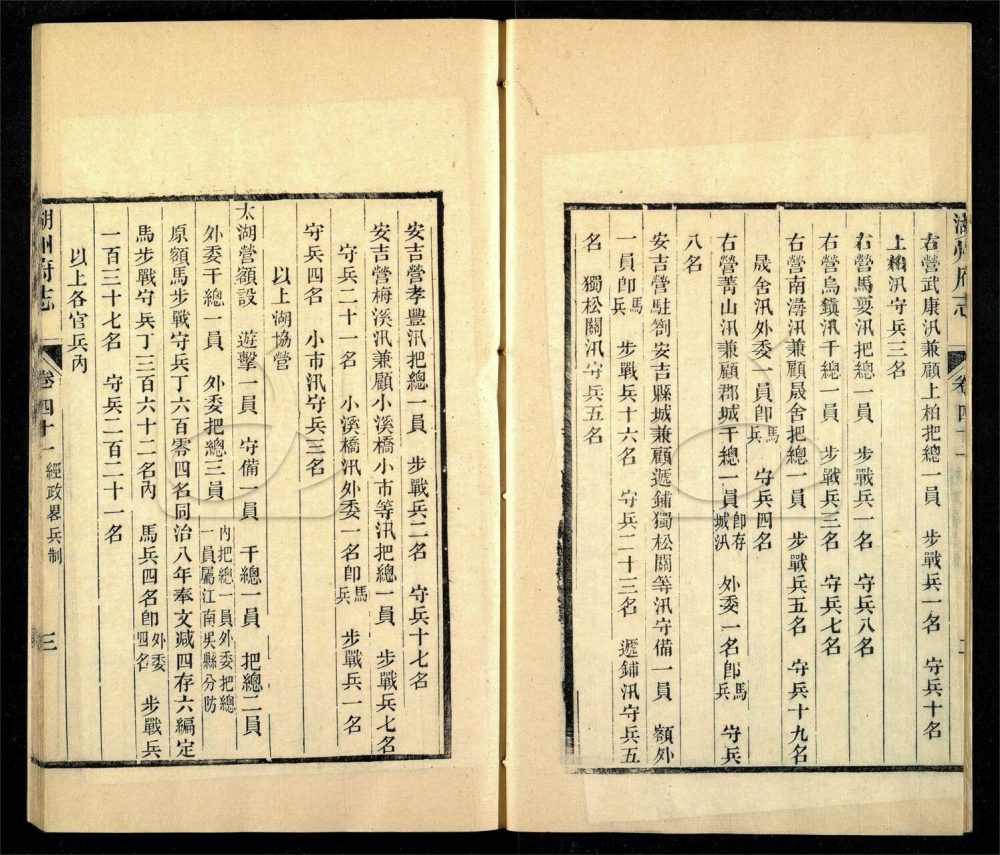 湖州府志 卷四十一
右營武康汛兼顧上柏把總一員 步戰兵一名 守兵十名
上柏汛守兵三名
右營馬要汛把總一員 步戰兵一名 守兵八名
右營烏鎮汛千總一員 步戰兵三名 守兵七名
右營南潯汛兼顧晟舍把總一員 步戰兵五名 守兵十九名
晟舍汛外委一員卽馬兵 守兵四名
右營菁山汛兼顧郡城千總一員卽存城汛 外委一名卽馬兵 守兵
八名
安吉營駐劄安吉縣城兼顧遞鋪獨松關等汛守備一員 額外
一員卽馬兵 步戰兵十六名 守兵二十三名 遞鋪汛守兵五
名 獨松關汛守兵五名
安吉營孝豐汛把總一員 步戰兵二名 守兵十七名
安吉營梅溪汛兼顧小溪橋小市等汛把總一員 步戰兵七名
守兵二十一名 小溪橋汛外委一名卽馬兵 步戰兵一名
守兵四名 小市汛守兵三名
以上湖協營
太湖營額設 遊擊一員 守備一員 千總一員 把總二員
外委千總一員 外委把總三員 內把總一員外委把總一員屬江南吳縣分防
原額馬步戰守兵丁六百零四名同治八年奉文减四存六編定
馬步戰守兵丁三百六十二名內 馬兵四名卽外委四名 步戰兵
一百三十七名 守兵二百二十一名
以上各官兵內
湖州府志 卷四十一 經政畧兵制 三